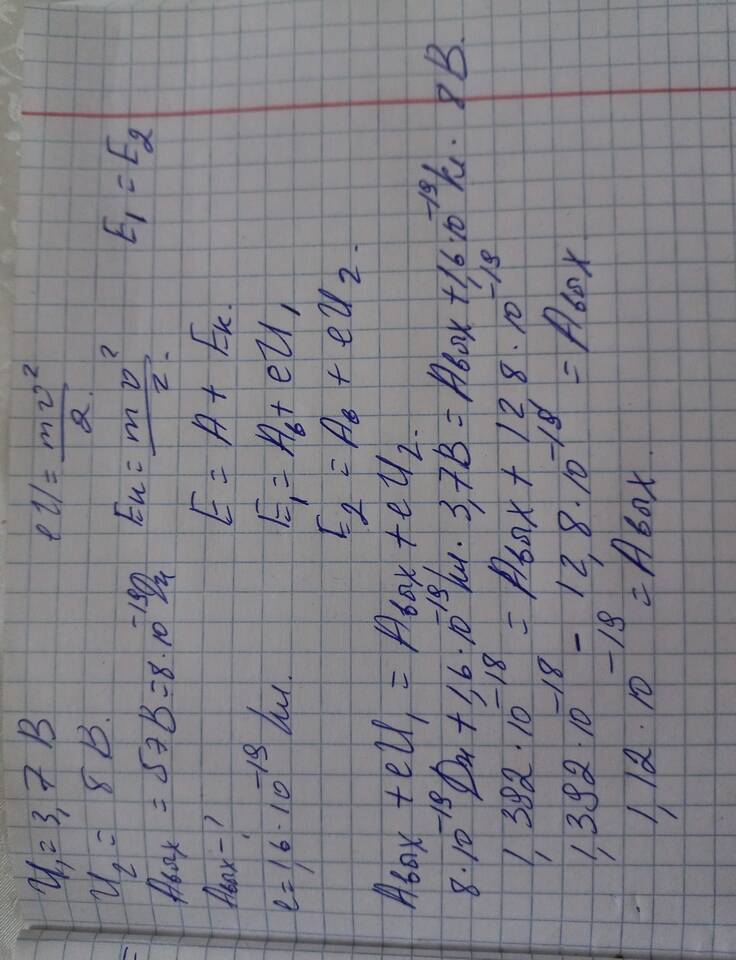 U₁ = 3,7 В
U₂ = 8 В.
Aвых = 5 эВ = 8·10⁻¹⁹ Дж
Aвых - ?
e = 1,6·10⁻¹⁹ Кл.
eU = mv²/2.
Eк = mv²/2.
E₁ = E₂
E = A + Eк.
E₁ = Aв + eU₁
E₂ = Aв + eU₂.
Aвых + eU₁ = Aвых + eU₂.
8·10⁻¹⁹ Дж + 1,6·10⁻¹⁹ Кл · 3,7 В = Aвых + 1,6·10⁻¹⁹ Кл · 8 В.
1,392·10⁻¹⁸ = Aвых + 12,8·10⁻¹⁹
1,392·10⁻¹⁸ - 12,8·10⁻¹⁹ = Aвых
1,12·10⁻¹⁹ = Aвых.